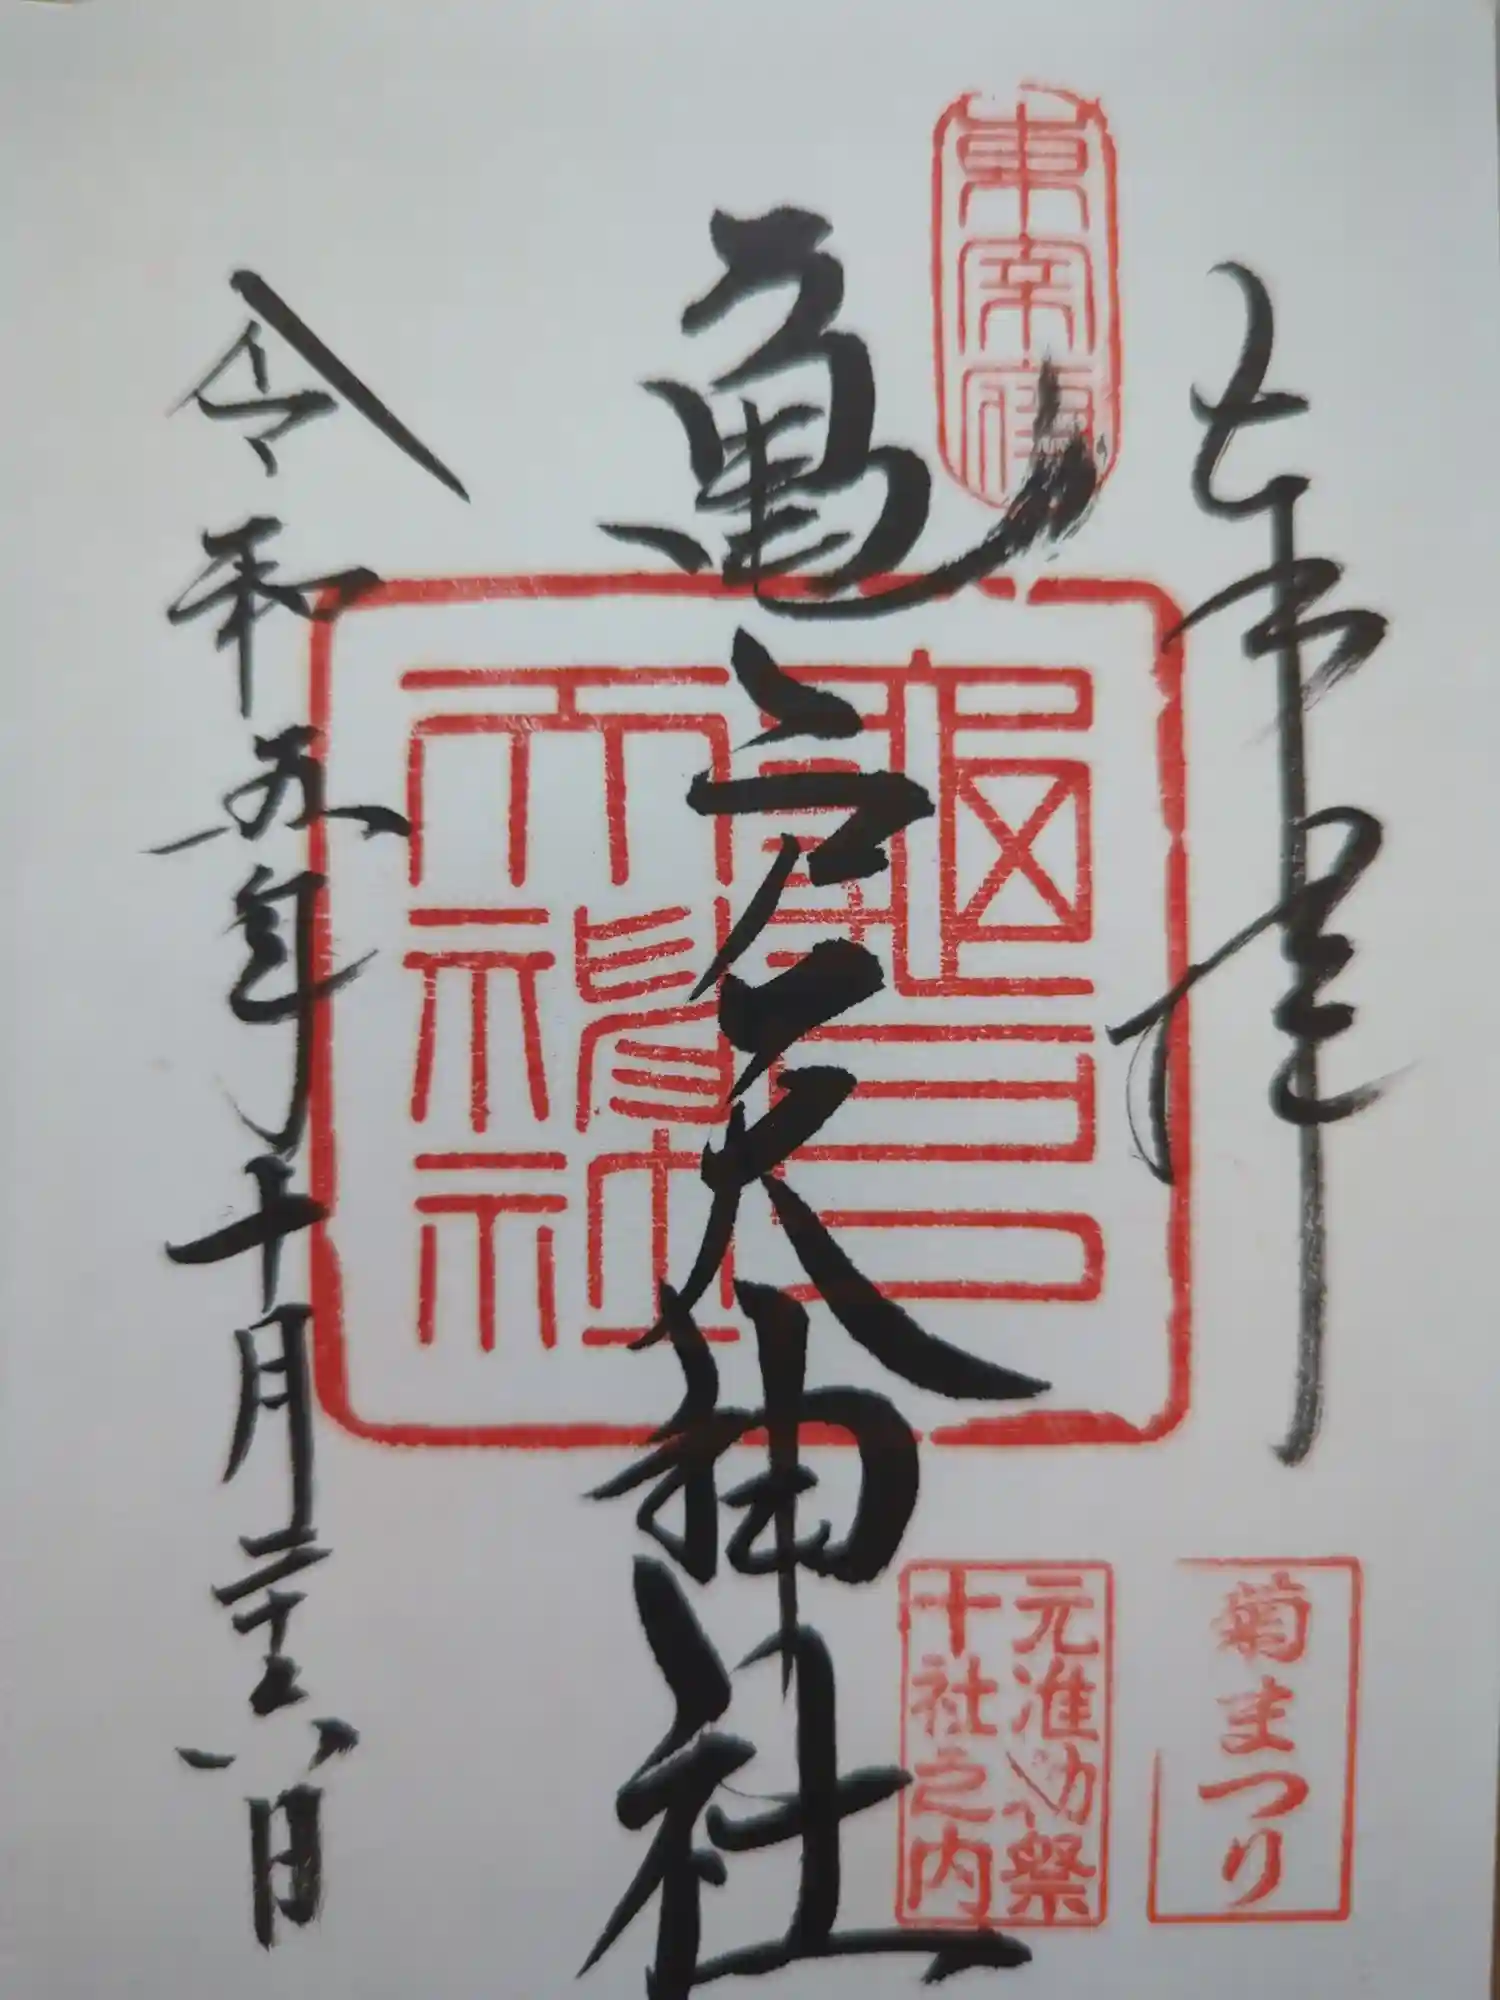 奉拝
東宰府
亀戸天神社
亀戸天神社
元准勅祭
十社之内
菊まつり
令和五年十月二十八日